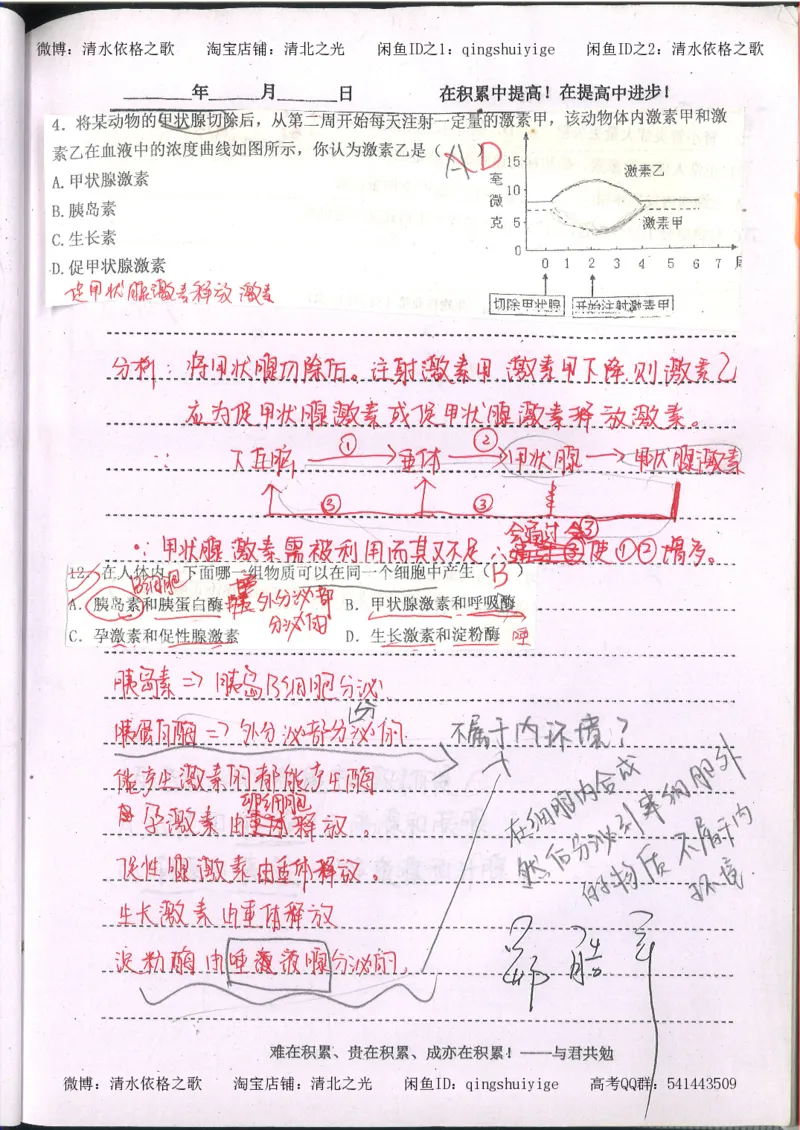 微博：清水依格之歌 淘宝店铺：清北之光 闲鱼ID之1：qingshuiyige 闲鱼ID之2：清水依格之歌
年 月 日 在积累中提高！在提高中进步！
4．将某动物的甲状腺切除后，从第二周开始每天注射一定量的激素甲，该动物体内激素甲和激
素乙在血液中的浓度曲线如图所示，你认为激素乙是（ A D
A.甲状腺激素
B.胰岛素
C.生长素
D.促甲状腺激素
促甲状腺激素释放激素
毫微克
15
10
5
0
激素乙
激素甲
0 1 2 3 4 5 6 7 周
切除甲状腺 开始注射激素甲
分析：将甲状腺切除后。注射激素甲 激素甲下降则激素乙
应为促甲状腺激素或促甲状腺激素释放激素。
∵ 下丘脑 ① 垂体 ② 甲状腺 → 甲状腺激素
③ ③
会通过 ③
∵甲状腺激素需被利用而其又不足 ∴ 使①②增多。
12．在人体内，下面哪一组物质可以在同一个细胞中产生（ B ）
B细胞
A．胰岛素和胰蛋白酶 外分泌部
分泌的
B．甲状腺激素和呼吸酶
C．孕激素和促性腺激素 D．生长激素和淀粉酶 唾
胰岛素⇒胰岛B细胞分泌
胰蛋白酶⇒外分泌部分泌的
不属于内环境？
能产生激素的都能产生酶
孕激素由 释放。
促性腺激素由垂体释放。
生长激素由垂体释放
淀粉酶由唾液腺分泌的
在细胞内合成
然后分泌到 细胞外
的物质 不属于内
环境
难在积累、贵在积累、成亦在积累！——与君共勉
微博：清水依格之歌 淘宝店铺：清北之光 闲鱼ID：qingshuiyige 高考QQ群：541443509